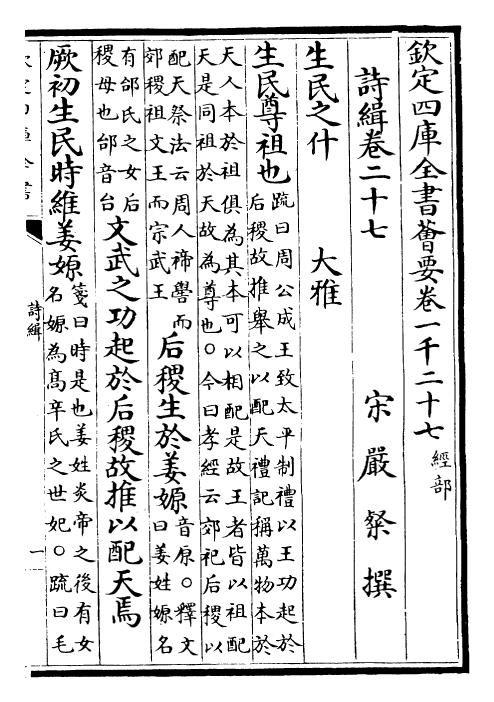 欽定四庫全書薈要卷一千二十七 經部
詩緝卷二十七
宋 嚴粲 撰
生民之什 大雅
生民尊祖也
疏曰周公成王致太平制禮以王功起於
后稷故推舉之以配天禮記稱萬物本於
天人本於祖俱為其本可以相配是故王者皆以祖配
天是同祖於天故為尊也○今曰孝經云郊祀后稷以
配天祭法云周人禘嚳而
郊稷祖文王而宗武王
后稷生於姜嫄
音原○釋文
曰姜姓嫄名
有邰氏之女后
稷母也邰音台
文武之功起於后稷故推以配天焉
厥初生民時維姜嫄
箋曰時是也姜姓炎帝之後有女
名嫄為髙辛氏之世妃○疏曰毛
詩緝
一